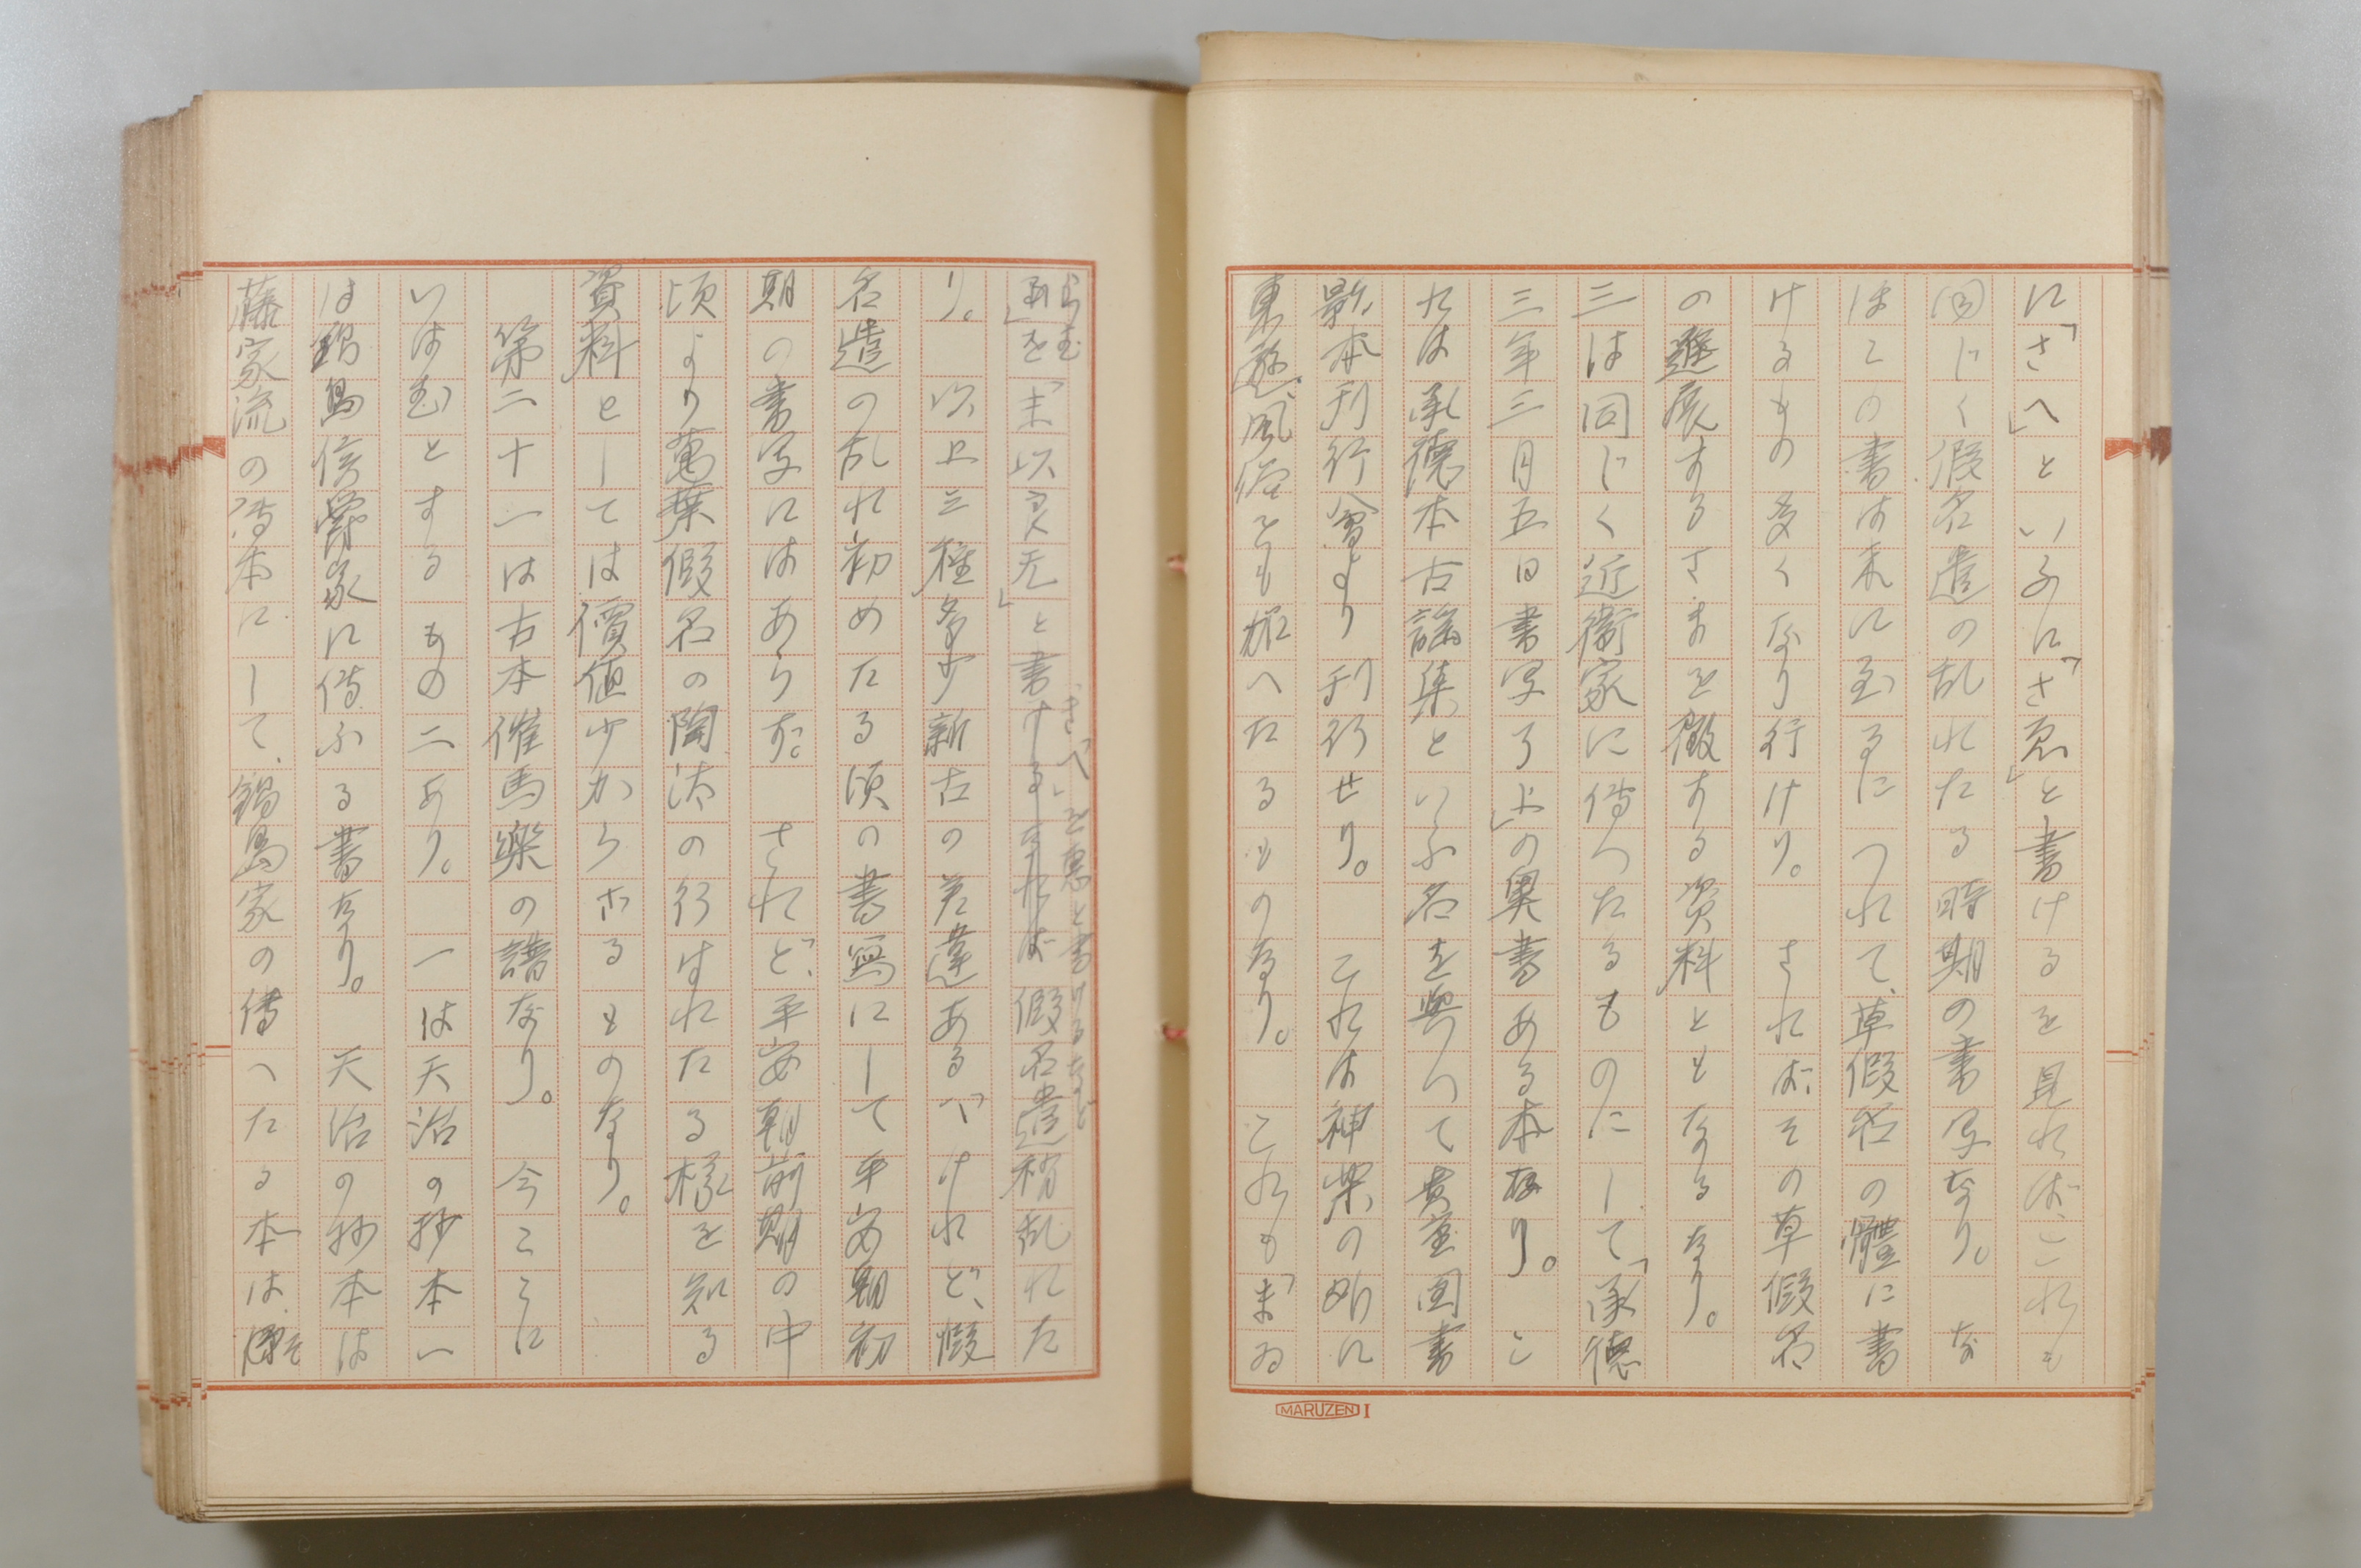 に「さへ」といふに「さゑ」と書けるを見れば、これも
同じく假名遣の乱れたる時期の書写なり。な
ほこの書は末に至るにつれて、草假名の體に書
けるもの多くなり行けり。されば、その草假名
の進展するさまを徴する資料ともなるなり。
三は同じく近衛家に傳へたるものにして、「承德
三年三月五日書写了」の奥書ある本なり。こ
れは承德本古謠集といふ名を與へて貴重圖書
影本刊行會より刊行せり。これは神樂の外に
東遊、風俗をも加へたるものなり。これも「まゐ
らむ」を「末以良无」と書ける
「さへ」を惠と書けるなど
假名遣稍乱れた
り。以上三種多少新古の差違あるべけれど、假
名遣の乱れ初めたる頃の書寫にして平安朝初
期の書写にはあらず。されど、平安朝前期の中
頃より萬葉假名の陶汰の行はれたる様を知る
資料としては價値少からざるものなり。
第二十一は古本催馬樂の譜なり。今ここに
いはむとするもの二あり。一は天治の抄本一
は鍋島侯爵家に傳ふる書なり。天治の抄本は
藤家流の傳本にして、鍋島家の傳へたる本は、源
MARUZEN I